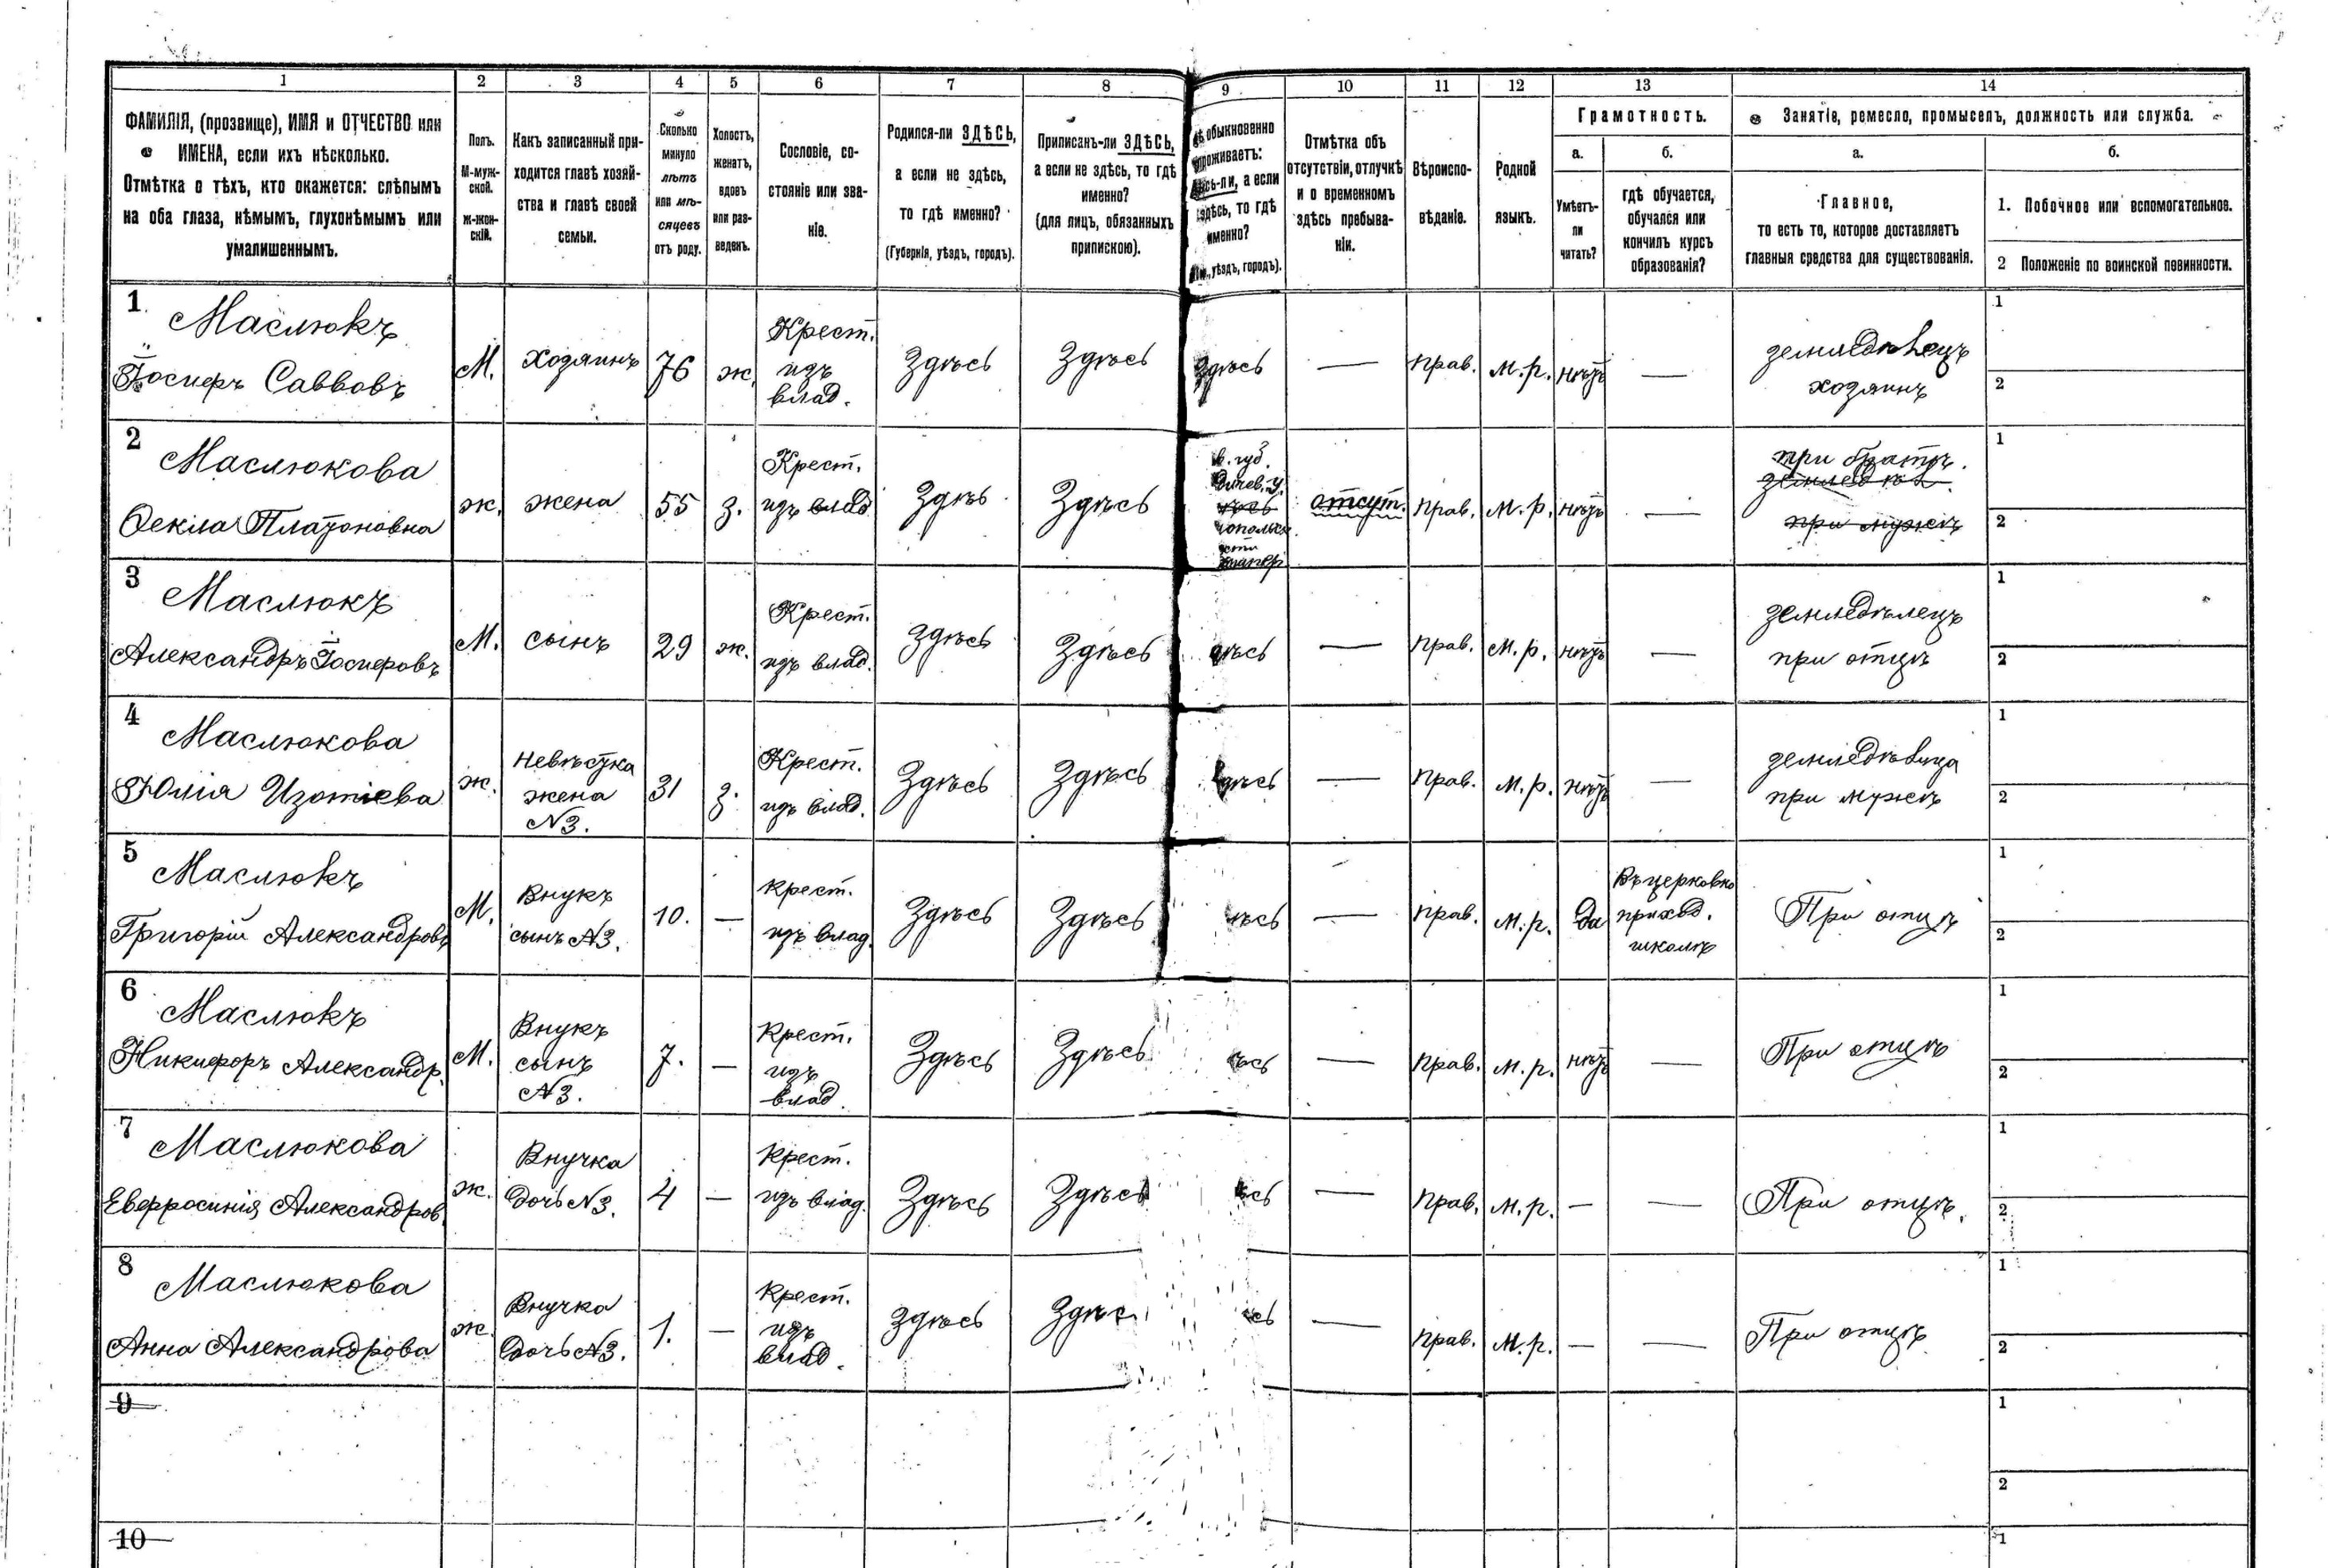 1 2 3 4 5 6 7 8 9 10 11 12 13 14
ФАМИЛІЯ, (прозвище), ИМЯ и ОТЧЕСТВО или
ИМЕНА, если ихъ нѣсколько.
Отмѣтка о тѣхъ, кто окажется: слѣпымъ
на оба глаза, нѣмымъ, глухонѣмымъ или
умалишеннымъ.
Полъ.
М-муж-
ской.
ж-жен-
скій.
Какъ записанный при-
ходится главѣ хозяй-
ства и главѣ своей
семьи.
Сколько
минуло
лѣтъ
или мѣ-
сяцевъ
отъ роду.
Холостъ,
женатъ,
вдовъ
или раз-
веденъ.
Сословіе, со-
стояніе или зва-
ніе.
Родился-ли ЗДѢСЬ,
а если не здѣсь,
то гдѣ именно?
(Губернія, уѣздъ, городъ).
Приписанъ-ли ЗДѢСЬ,
а если не здѣсь, то гдѣ
именно?
(для лицъ, обязанныхъ
припискою).
обыкновенно
проживаетъ:
а если
здѣсь, то гдѣ
именно?
уѣздъ, городъ).
Отмѣтка объ
отсутствіи, отлучкѣ
и о временномъ
здѣсь пребыва-
ніи.
Вѣроиспо-
вѣданіе.
Родной
языкъ.
Грамотность.
а.
Умѣетъ-
ли
читать?
б.
гдѣ обучается,
обучался или
кончилъ курсъ
образованія?
Занятіе, ремесло, промыселъ, должность или служба.
а.
Главное,
то есть то, которое доставляетъ
главныя средства для существованія.
б.
1. Побочное или вспомогательное.
2 Положеніе по воинской повинности.
1
Маслюкъ
Іосиферъ Саввовъ
М.
хозяинъ
76
ж.
Крест.
изъ
влад.
Здѣсь
Здѣсь
Здѣсь
—
прав.
м.р.
нѣтъ
—
земледѣлецъ
хозяинъ
1
2
2
Маслюкова
Ѳекла Платоновна
ж.
жена
55
з.
Крест.
изъ влад
Здѣь
Здѣсь
отсут.
прав.
м.р.
нѣтъ
—
при братѣ.
при мужѣ
1
2
3
Маслюкъ
Александръ Іосиферовъ
М.
сынъ
29
ж.
Крест.
изъ влад.
Здѣсь
Здѣсь
ѣсь
—
прав.
м.р.
нѣтъ
—
земледѣлецъ
при отцѣ
1
2
4
Маслюкова
Юлія Изотіева
ж.
невѣстка
жена
№3.
31
з.
Крест.
изъ влад.
Здѣсь
Здѣсь
дѣсь
—
прав.
м.р.
нѣтъ
—
земледѣлица
при мужѣ
1
2
5
Маслюкъ
Григорій Александровъ
М.
Внукъ
сынъ №3.
10.
—
крест.
изъ влад.
Здѣсь
Здѣсь
ѣсь
—
прав.
м.р.
да
Въ церковно
приход.
школѣ
При отцѣ
1
2
6
Маслюкъ
Никифоръ Александр.
М.
Внукъ
сынъ
№3.
7.
—
Крест.
изъ
влад.
Здѣсь
Здѣсь
ѣсь
—
прав.
м.р.
нѣтъ
—
При отцѣ
1
2
7
Маслюкова
Еверросинія Александров
ж.
Внучка
дочь №3.
4
—
крест.
изъ влад.
Здѣсь
Здѣсь
ѣсь
—
прав.
м.р.
—
—
При отцѣ.
1
2
8
Маслюкова
Анна Александрова
ж.
Внучка
дочь №3.
1.
—
Крест.
изъ
влад.
Здѣсь
Здѣс
сь
—
прав.
м.р.
—
—
При отцѣ
1
2
9
1
2
10
1